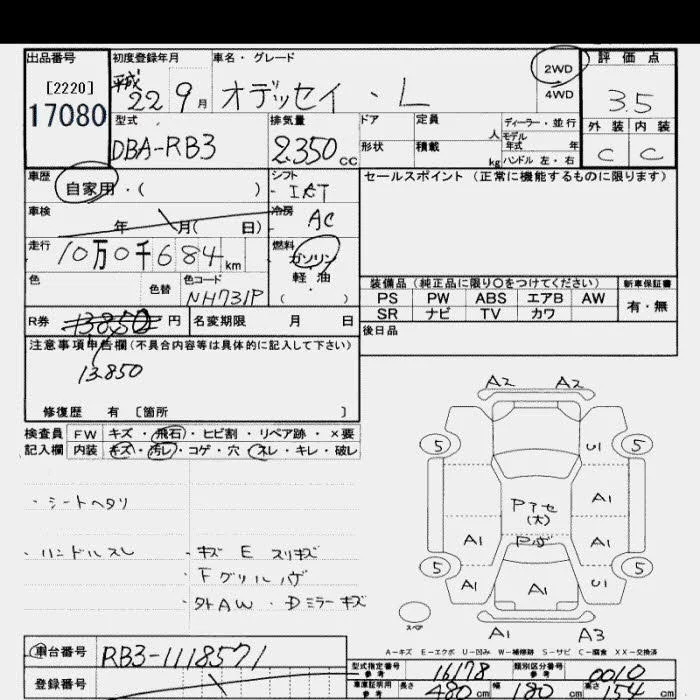 出品番号
[2220]
17080
初度登録年月
平成 22 9月
車名・グレード
オデッセイ・L
2WD
4WD
評価点
3.5
外装 内装
C C
型式
DBA-RB3
排気量
2.350 CC
ドア 定員 人
形状 積載 kg
ディーラー・並行
モデル年式 年
ハンドル 左・右
車歴
自家用・( )
シフト
IAT
車検
年 月( 日)
冷房
AC
走行
10万0千684km
燃料
ガソリン
軽・油
( )
色 色替
色コード
NH731P
セールスポイント(正常に機能するものに限ります)
装備品(純正品に限り〇をつけてください)
PS PW ABS エアB AW
SR ナビ TV カワ
新車保証書
有・無
後日品
R券 13850 円
名変期限 月 日
注意事項申告欄(不具合内容等は具体的に記入して下さい)
13.850
修復歴 有 〔箇所 〕
検査員記入欄
FW キズ・飛石・ヒビ割・リペア跡・×要
内装 キズ・汚レ・コゲ・穴・スレ・キレ・破レ
・シートヘタリ
・ハンドルスレ
・キズ E スリキズ
Fグリルハゲ
・タトAW・Dミラーキズ
A2 A2
5 U1 5
A1
Pアセ
(大)
Pハゲ
A1 A1
5 5
A1 A1 U1
スペア
A1 A3
A-キズ E-エクボ U-凹み W-補修跡 S-サビ C-腐食 XX-交換済
車台番号
RB3-1118571
登録番号
型式指定番号
参考
16178
類別区分番号
参考
0010
車庫証明用
参考
長さ 480 cm 幅 180 cm 高さ 154 cm